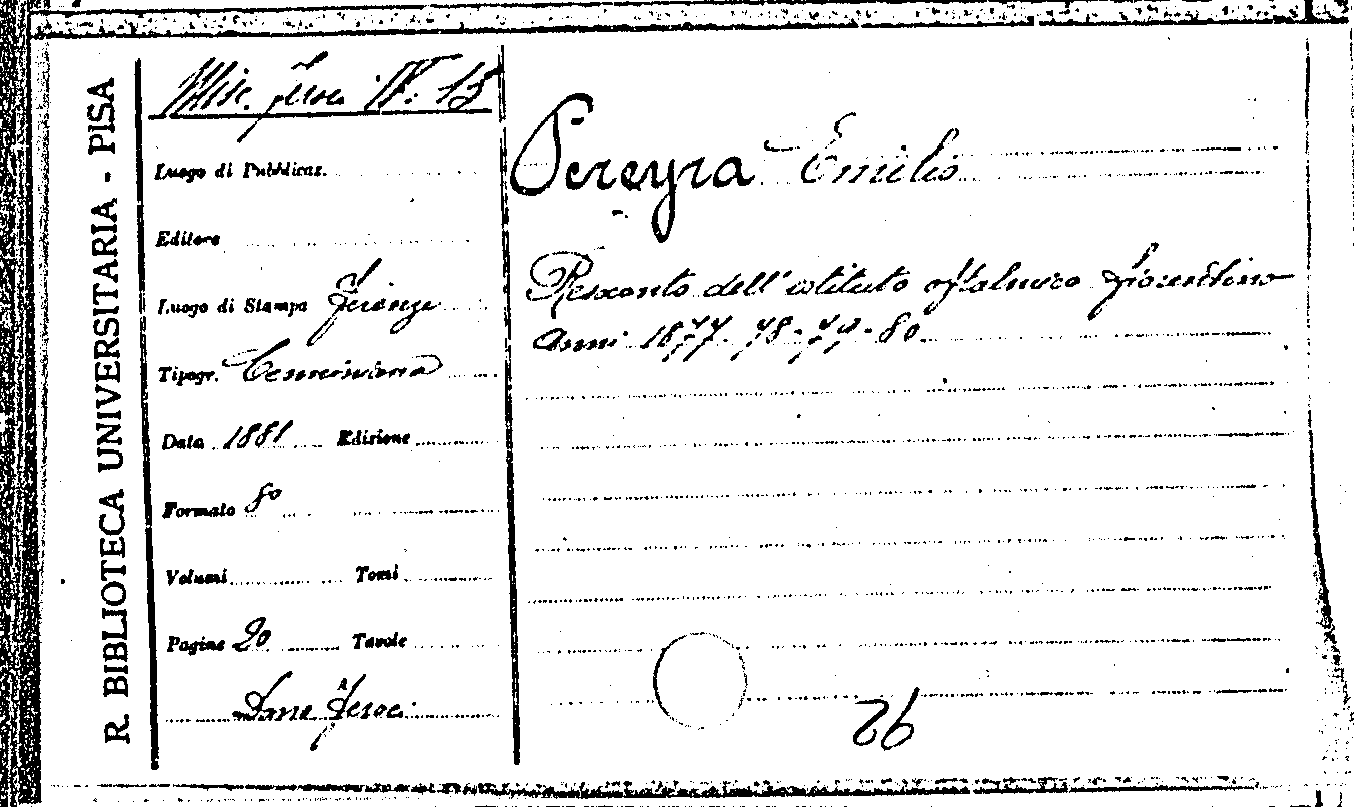 R. BIBLIOTECA UNIVERSITARIA - PISA
Misc. Feroci IV. 15
Luogo di Pubblicaz.
Editore
Luogo di Stampa Firenze
Tipogr. Cenniniana
Data 1881 Edizione
Formato 8°
Volumi Tomi
Pagine 20 Tavole
Dono Feroci
Pereyra Emilio
Resoconto dell'istituto oftalmico fiorentino
Anni 1877-78-79-80
92